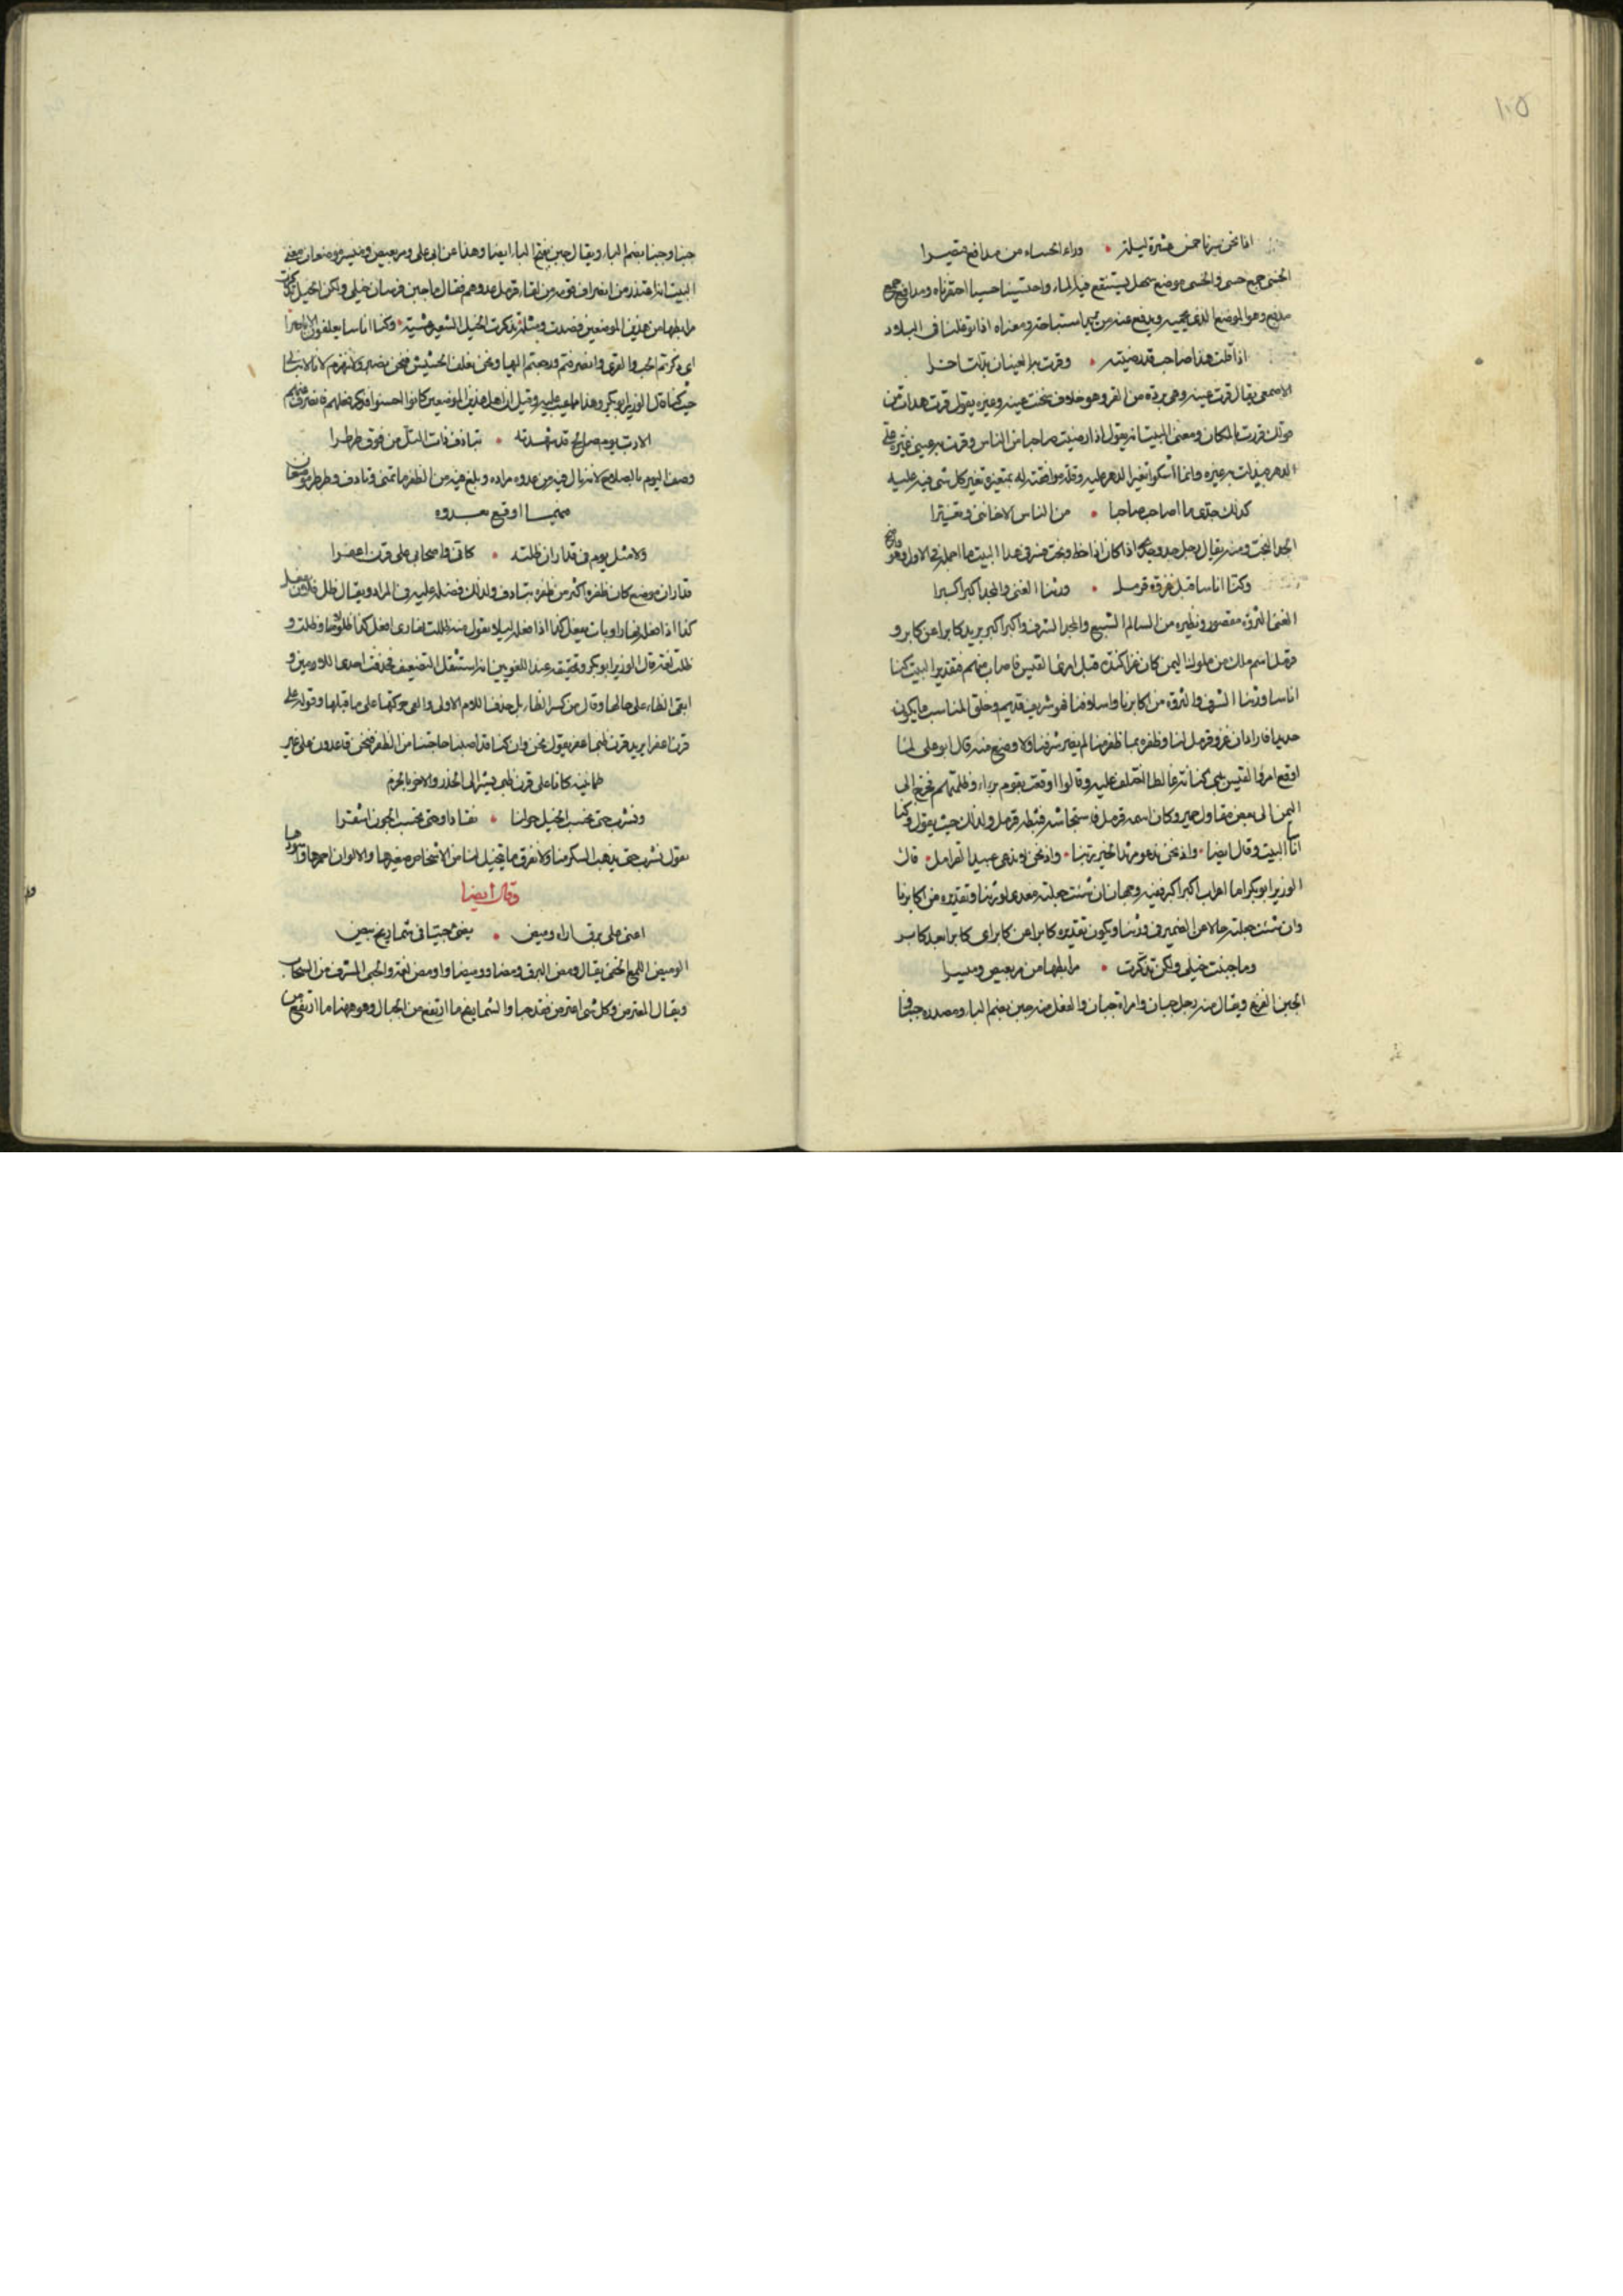 ١٠٥
اذا نحن سرنا خمس عشرة ليلة • وراء الحساء من مدافع قيصرا
الحسى جمع حسى والحسى موضع سهل يستنقع فيه الماء واحتسينا حسيا احتفرناه ومدافع جمع
مدفع وهو الموضع الذى يحميه ويدفع عنه من يريد استباحته ومعناه اذا توغلنا فى البلاد
اذا قلت هذا صاحب قد رضيته • وقرت به العينان بدلت اخرا
الاصمعى يقال قرت عينه وهى بردة من القر وهو خلاف سخنت عينه وغيره يقول قرت هدات من
قولك قررت بالمكان ومعنى البيت انه يقول اذا رضيت صاحبا من الناس وقرت به عينى غيره على
الدهر فبدلت به غيره وانما اشكو تغير الدهر عليه وقلة موافقته له بتغييره وتغير كل شى فيه عليه
كذلك جدى ما اصاحب صاحبا • من الناس الا خاننى وتغيرا
الجد البخت ومنه يقال رجل جد وجدى اذا كان ذا حظ وبخت فسر فى هذا البيت ما اجمله فى الاول وهو واضح
وكنا اناسا قبل غزوة قرمل • ورثنا الغنى والمجد اكبر اكبرا
الغنى الثروة مقصور ونظيره من السالم الشبع والمجد الشرف واكبر اكبر يريد كابرا عن كابر و
قرمل اسم ملك من ملوك اليمن كان غزا كندة قبل امرئ القيس فاصاب منهم فتقدير البيت كنا
اناسا ورثنا الشرف والثروة من اكابرنا واسلافنا فهو شريف قديم وخلق المناسب ما يكون
حديدا فاراد ان غزو قرمل لنا وظفره بما ظفر منا لم يغير شرفنا ولا وضع منه قال ابو على لما
اوقع امرؤ القيس ببنى كنانة غالطا اختلف عليه وقالوا اوقعت بقوم برءاء وظلمتهم فخرج الى
اليمن الى بعض مقاول حمير وكان اسمه قرمل فاستجاشه فثبطه قرمل ولذلك حيث يقول وكنا
اناسا البيت وقال ايضا • واذ نحن ندعو مرثد الخير ربنا • واذ نحن لا ندعى عبيدا لقرمل • قال
الوزير ابو بكر اما اعراب اكبر اكبر ففيه وجهان ان شئت جعلته معدى لورثنا وتقديره من اكابرنا
وان شئت جعلته حالا من الضمير فى ورثنا ويكون تقديره كابرا عن كابر اى كابرا بعد كابر
وما جبنت خيلى ولكن تذكرت • مرابطها من بربعيص وميسرا
الجبن الفزع ويقال منه رجل جبان وامراة جبان والفعل منه جبن بضم الباء ومصدره جبنا
جبنا وجبنا بضم الباء ويقال جبن بفتح الباء ايضا وهذا عن ابى على وبربعيص وميسر موضعان معنى
البيت انه اعتذر من انصراف قومه من لقاء قرمل عدوهم فقال ما جبن فرسان خيلى ولكن الخيل تذكرت
مرابطها من هذين الموضعين فصدت ومثله تذكرت الخيل الشعير عشية • وكنا اناسا يعلفون الاياصرا
اى ذكرتم الحب والقرى وانصرفتم ورجعتم اليها ونحن نعلف الحشيش فنحن نصبر ولا ننهزم لانا لا نبالى
حيث كنا قال الوزير ابو بكر وهذا مما عيب عليه وقيل ان اهل هذين الموضعين كانوا احسنوا فذكر فعلهم فانصرف عنهم
الا رب يوم صالح قد شهدته • بتاذف ذات التل من فوق طرطرا
وصف اليوم بالصلاح لانه نال فيه من عدوه مراده وبلغ فيه من الظفر ما تمنى وتاذف وطرطر موضعان
فيهما اوقع بعدوه
ولا مثل يوم فى قذاران ظلته • كانى واصحابى على قرن اعفرا
قذاران موضع كان ظفره اكثر من ظفره بتاذف ولذلك فضله عليه فى المراد ويقال ظل فلان يفعل
كذا اذا فعله نهارا وبات يفعل كذا اذا فعله ليلا يقول منه ظللت نهارى افعل كذا ظلولا وظلت و
ظلت لغة قال الوزير ابو بكر وتحقيقه عند اللغويين انه استثقل التضعيف فحذفت احدى اللامين و
ابقى الظاء على حالها وقال من كسر الظاء بل حذفنا اللام الاولى والقى حركتها على ما قبلها وقوله على
قرن اعفرا يريد قرن ظبى اعفر يقول نحن وان كنا قد اصبنا حاجتنا من الظفر فنحن قاعدون على غير
طمانينة كانا على قرن ظبى يشير الى الحذر والاخذ بالحزم
ونشرب حتى نحسب الخيل حولنا • نقادا وحتى نحسب الجون اشقرا
يقول نشرب حتى يذهب السكر منا ولا نفرق ما يتخيل لنا من الاشخاص صغيرها والالوان احمرها واسودها
وقال ايضا
اعنى على برق اراه وميض • يضئ حبيا فى شماريخ بيض
الوميض اللمع الخفى يقال ومض البرق ومضا ووميضا واومض لغة والحبى المشرف من السحاب
ويقال المعترض وكل شى اعترض فقد حبا والشماريخ ما ارتفع من الجبال وهو ههنا ما ارتفع من